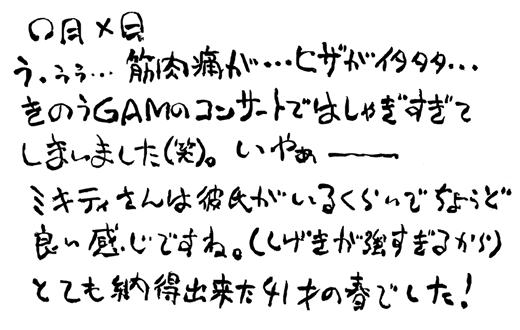 ○月×日
う、うぅ…筋肉痛が…ヒザがイタタタ…
きのうGAMのコンサートではしゃぎすぎて
しまいました(笑)。いやぁ――
ミキティさんは彼氏がいるくらいでちょうど
良い感じですね。(しげきが強すぎるから)
とても納得出来た41才の春でした!